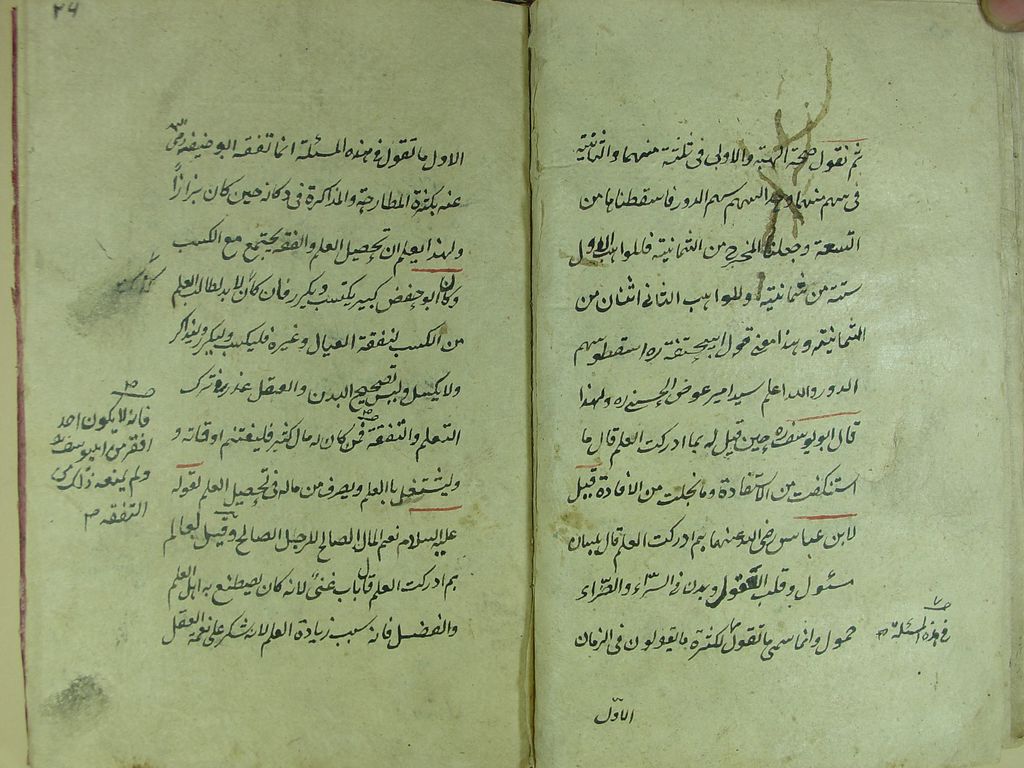 ثم نقول صحة الهبة والاولى فى ثلثة منهما والثانية
فى سهم منهما السهم سهم الدور فاسقطناها من
التسعة وجعلنا المخرج من الثمانية فللواهب الاول
ستة من ثمانية وللواهب الثانى اثنان من
الثمانية وهذا معنى قول ابيحنيفة ره اسقطوا سهم
الدور والله اعلم سيد امير عوض ره ولهذا
قال ابو يوسف ره حين قيل له بما ادركت العلم قال ما
استنكفت من الاستفادة وما بخلت من الافادة قيل
لابن عباس رضى الله عنهما بم ادركت العلم قال بلسان
سئول وقلب عقول وبدن فى السراء والضراء
حمول وانما سمى ما تقول لكثرة ما يقولون فى الزمان
فى هذه المسئلة
الاول
٢٤
الاول ما تقول فى هذه المسئلة انما تفقه ابو حنيفة رضى
عنه بكثرة المطارحة والمذاكرة فى دكانه حين كان بزازًا
ولهذا يعلم ان تحصيل العلم والفقه يجتمع مع الكسب
وكان ابو حفص كبير يكتسب ويكرر فان كان لابد لطالب العلم
من الكسب لنفقة العيال وغيره فليكتسب وليكرر وليذاكر
ولا يكسل وليس لصحيح البدن والعقل عذر فى ترك
التعلم والتفقه فمن كان له مال كثير فليغتنم اوقاته و
وليشتغل باالعلم ويصرف من ماله فى تحصيل العلم لقوله
عليه السلام نعم المال الصالح للرجل الصالح وقيل لعالم
بم ادركت العلم قال باب غنى لانه كان يصطنع به اهل العلم
والفضل فانه سبب زيادة العلم لانه شكر على نعمة العقل
فانه لا يكون احد
افقر من ابو يوسف
ولم يمنعه ذلك من
التفقه